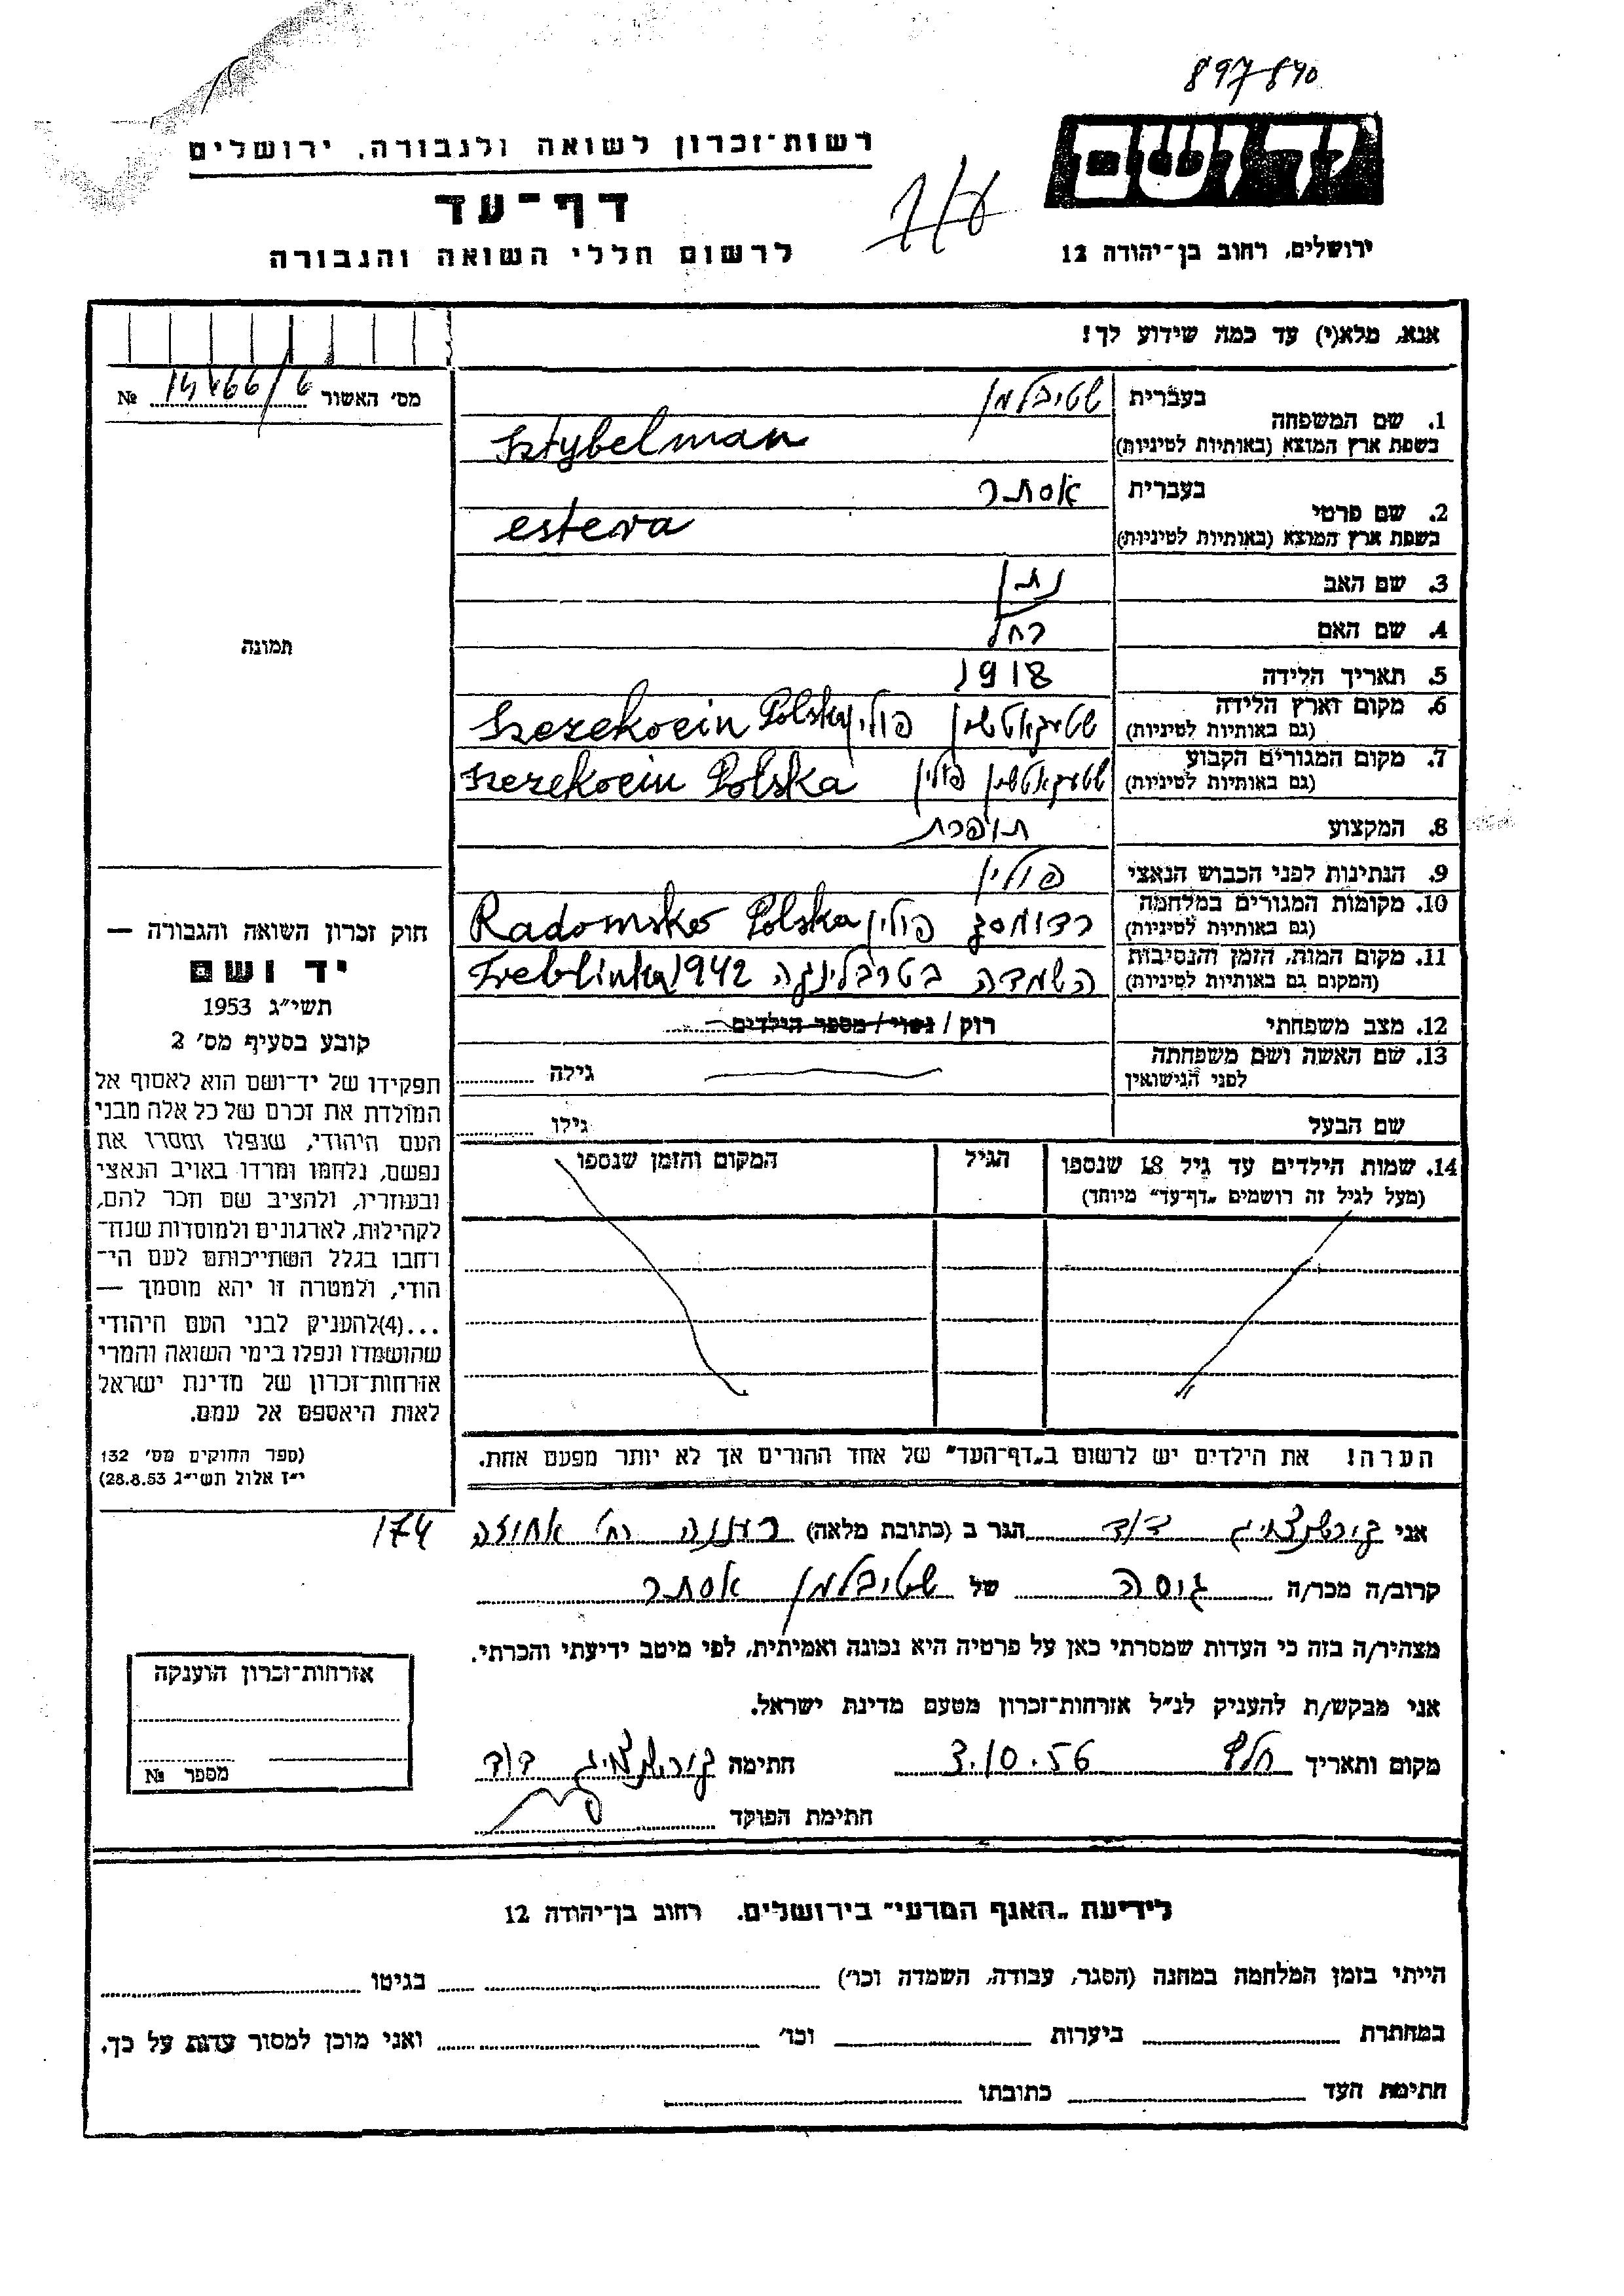 897840
יד ושם
רשות־זכרון לשואה ולגבורה, ירושלים
דף־עד
לרשום חללי השואה והגבורה
ירושלים, רחוב בן־יהודה 12
אנא, מלא(י) עד כמה שידוע לך!
מס' האשור №
1. שם המשפחה בעברית שטיבלמן
בשפת ארץ המוצא (באותיות לטיניות) Sztybelman
2. שם פרטי בעברית אסתר
בשפת ארץ המוצא (באותיות לטיניות) estera
3. שם האב נתן
4. שם האם רחל
5. תאריך הלידה 1918
6. מקום וארץ הלידה (גם באותיות לטיניות) פולין Szczekocin Polska
7. מקום המגורים הקבוע (גם באותיות לטיניות) פולין Szczekocin Polska
8. המקצוע תופרת
9. הנתינות לפני הכבוש הנאצי פולין
10. מקומות המגורים במלחמה (גם באותיות לטיניות) רדומסק פולין Radomsko Polska
11. מקום המות, הזמן והנסיבות (המקום גם באותיות לטיניות) השמדה בטרבלינקה 1942 Treblinka
12. מצב משפחתי רוק / נשוי / מספר הילדים
13. שם האשה ושם משפחתה לפני הנישואין גילה
שם הבעל גילו
14. שמות הילדים עד גיל 18 שנספו הגיל המקום והזמן שנספו
(מעל לגיל זה רושמים „דף־עד" מיוחד)
הערה! את הילדים יש לרשום ב„דף־העד" של אחד ההורים אך לא יותר מפעם אחת.
תמונה
חוק זכרון השואה והגבורה —
יד ושם
תשי"ג 1953
קובע בסעיף מס' 2
תפקידו של יד־ושם הוא לאסוף אל
המולדת את זכרם של כל אלה מבני
העם היהודי, שנפלו ומסרו את
נפשם, נלחמו ומרדו באויב הנאצי
ובעוזריו, ולהציב שם וזכר להם,
לקהילות, לארגונים ולמוסדות שנח־
רחבו בגלל השתייכותם לעם הי־
הודי, ולמטרה זו יהא מוסמך —
...(4)להעניק לבני העם היהודי
שהושמדו ונפלו בימי השואה והמרי
אזרחות־זכרון של מדינת ישראל
לאות היאספם אל עמם.
(ספר החוקים מס' 132
י"ז אלול תשי"ג 28.8.53)
אני דוד הגר ב (כתובת מלאה) רעננה רח' אחוזה 174
קרוב/ה מכר/ה גיסה של שטיבלמן אסתר
מצהיר/ה בזה כי העדות שמסרתי כאן על פרטיה היא נכונה ואמיתית, לפי מיטב ידיעתי והכרתי.
אני מבקש/ת להעניק לנ"ל אזרחות־זכרון מטעם מדינת ישראל.
מקום ותאריך 3.10.56 חתימה דוד
חתימת הפוקד
אזרחות־זכרון הוענקה
מספר №
לידיעת „האגף המדעי" בירושלים, רחוב בן־יהודה 12
הייתי בזמן המלחמה במחנה (הסגר, עבודה, השמדה וכו') בגיטו
במחתרת ביערות וכו' ואני מוכן למסור עדות על כך.
חתימת העד כתובתו